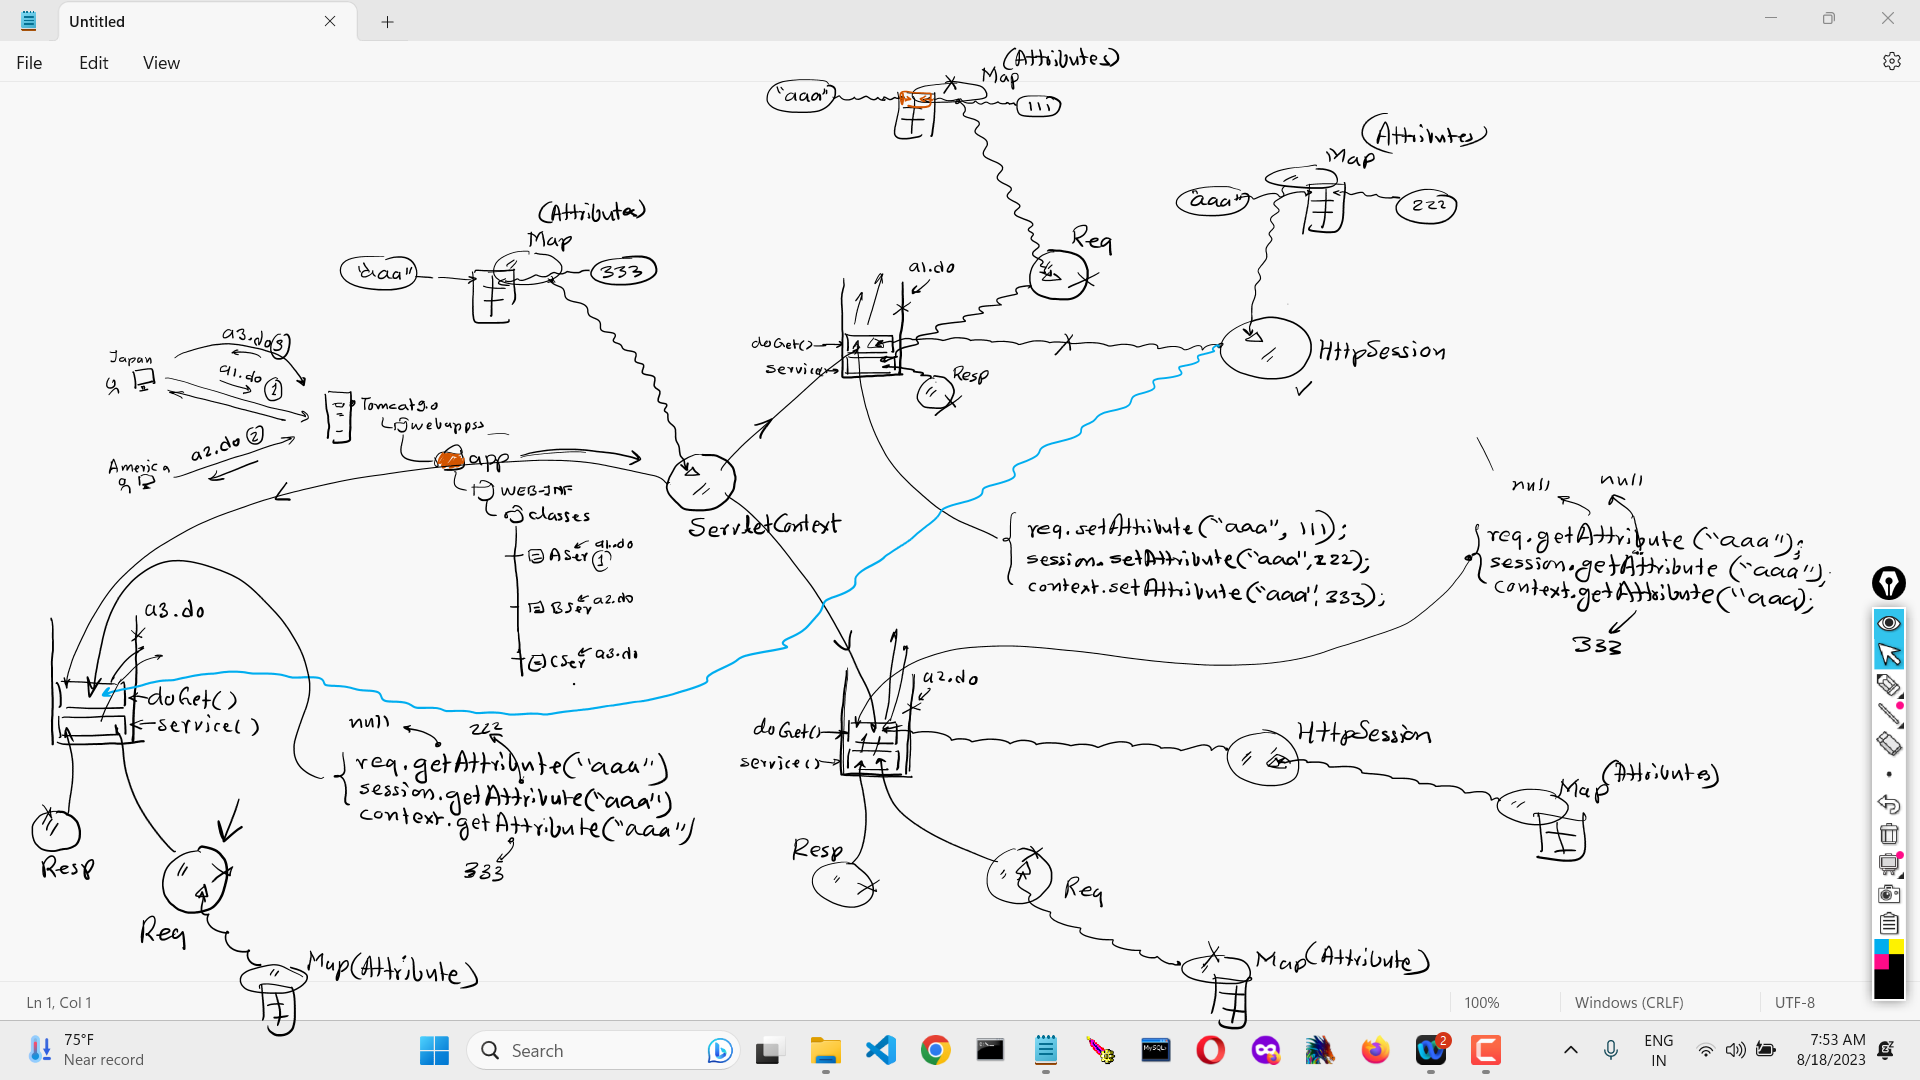 Untitled
File Edit View
(Attributes)
Map
"aaa"
111
(Attributes)
Map
"aaa"
222
(Attributes)
Map
"aaa"
333
Req
a1.do
doGet()
service
Resp
HttpSession
Japan
a3.do 3
a1.do 1
Tomcat9.0
webapps
a2.do 2
America
app
WEB-INF
classes
ASer a1.do
1
BSer a2.do
CSer a3.do
ServletContext
req.setAttribute("aaa", 111);
session.setAttribute("aaa",222);
context.setAttribute("aaa",333);
null null
req.getAttribute("aaa");
session.getAttribute("aaa");
context.getAttribute("aaa);
333
a3.do
doGet()
service()
null 222
req.getAttribute("aaa")
session.getAttribute("aaa")
context.getAttribute("aaa")
333
Resp
Req
Map(Attribute)
a2.do
doGet()
service()
HttpSession
Map (Attributes)
Resp
Req
Map(Attribute)
Ln 1, Col 1 100% Windows (CRLF) UTF-8
75°F
Near record
Search
MySQL
2
ENG
IN
7:53 AM
8/18/2023